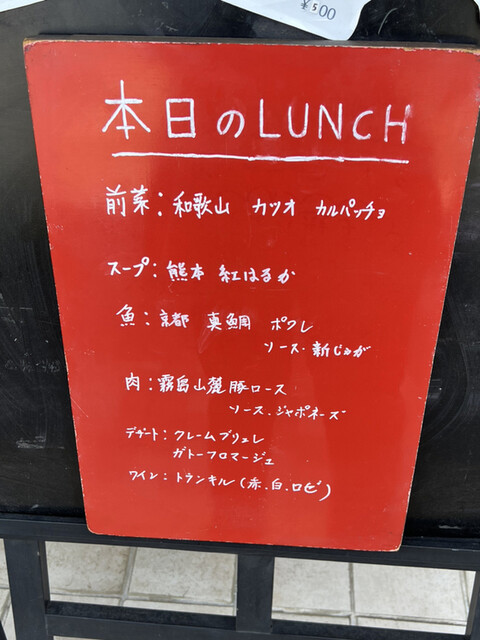 ¥500
本日のLUNCH
前菜：和歌山 カツオ カルパッチョ
スープ：熊本 紅はるか
魚：京都 真鯛 ポワレ
ソース・新じゃが
肉：霧島山麓豚ロース
ソース・ジャポネーズ
デザート：クレームブリュレ
ガトーフロマージュ
ワイン：トランキル(赤.白.ロゼ)